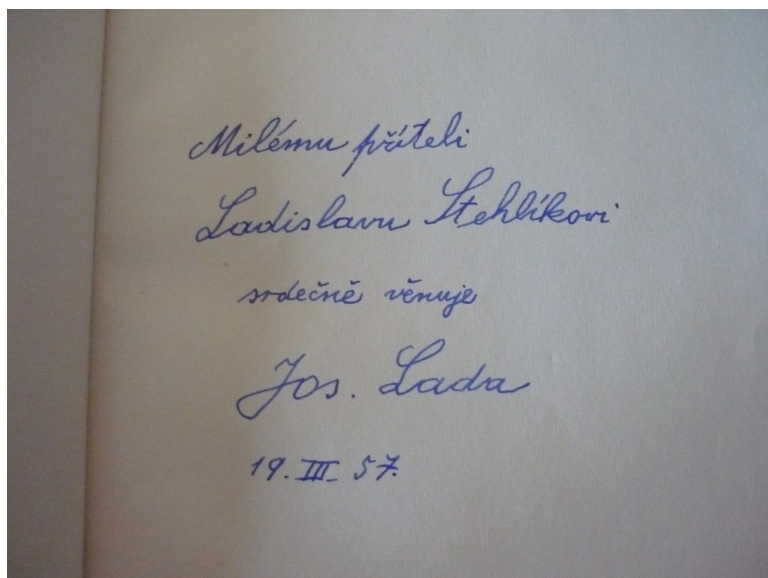 Milému příteli
Ladislavu Stehlíkovi
srdečně věnuje
Jos. Lada
19. III. 57.